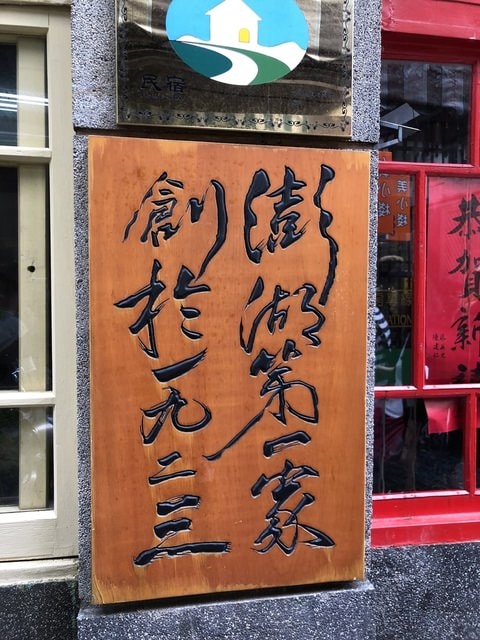 民宿
澎湖第一家
創於一九二三
恭賀新禧
美小棧